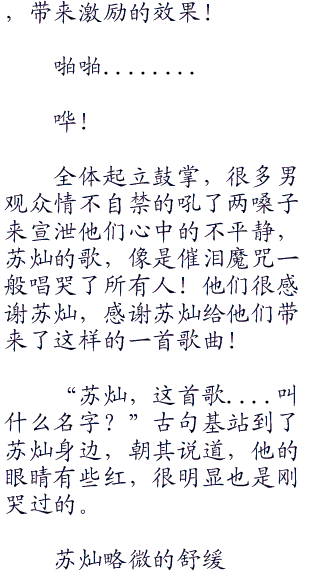 ，带来激励的效果！
啪啪........
哗！
全体起立鼓掌，很多男
观众情不自禁的吼了两嗓子
来宣泄他们心中的不平静，
苏灿的歌，像是催泪魔咒一
般唱哭了所有人！他们很感
谢苏灿，感谢苏灿给他们带
来了这样的一首歌曲！
“苏灿，这首歌....叫
什么名字？”古句基站到了
苏灿身边，朝其说道，他的
眼睛有些红，很明显也是刚
哭过的。
苏灿略微的舒缓